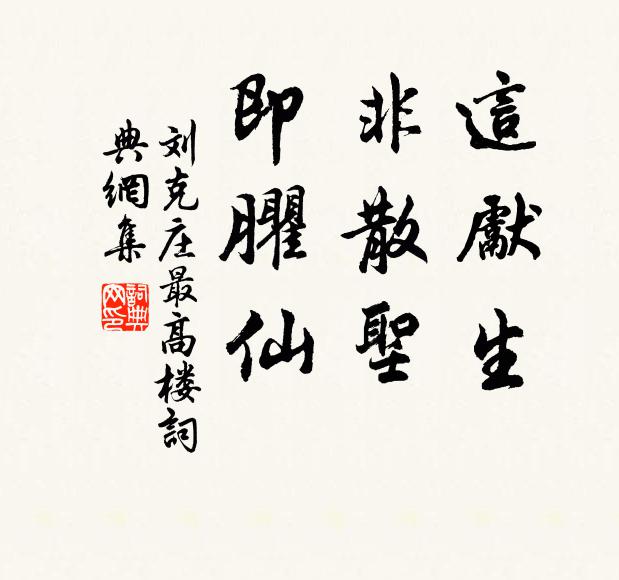 這獻生
非散聖
即臞仙
刘克庄最高楼詞
典網集
詞典網印